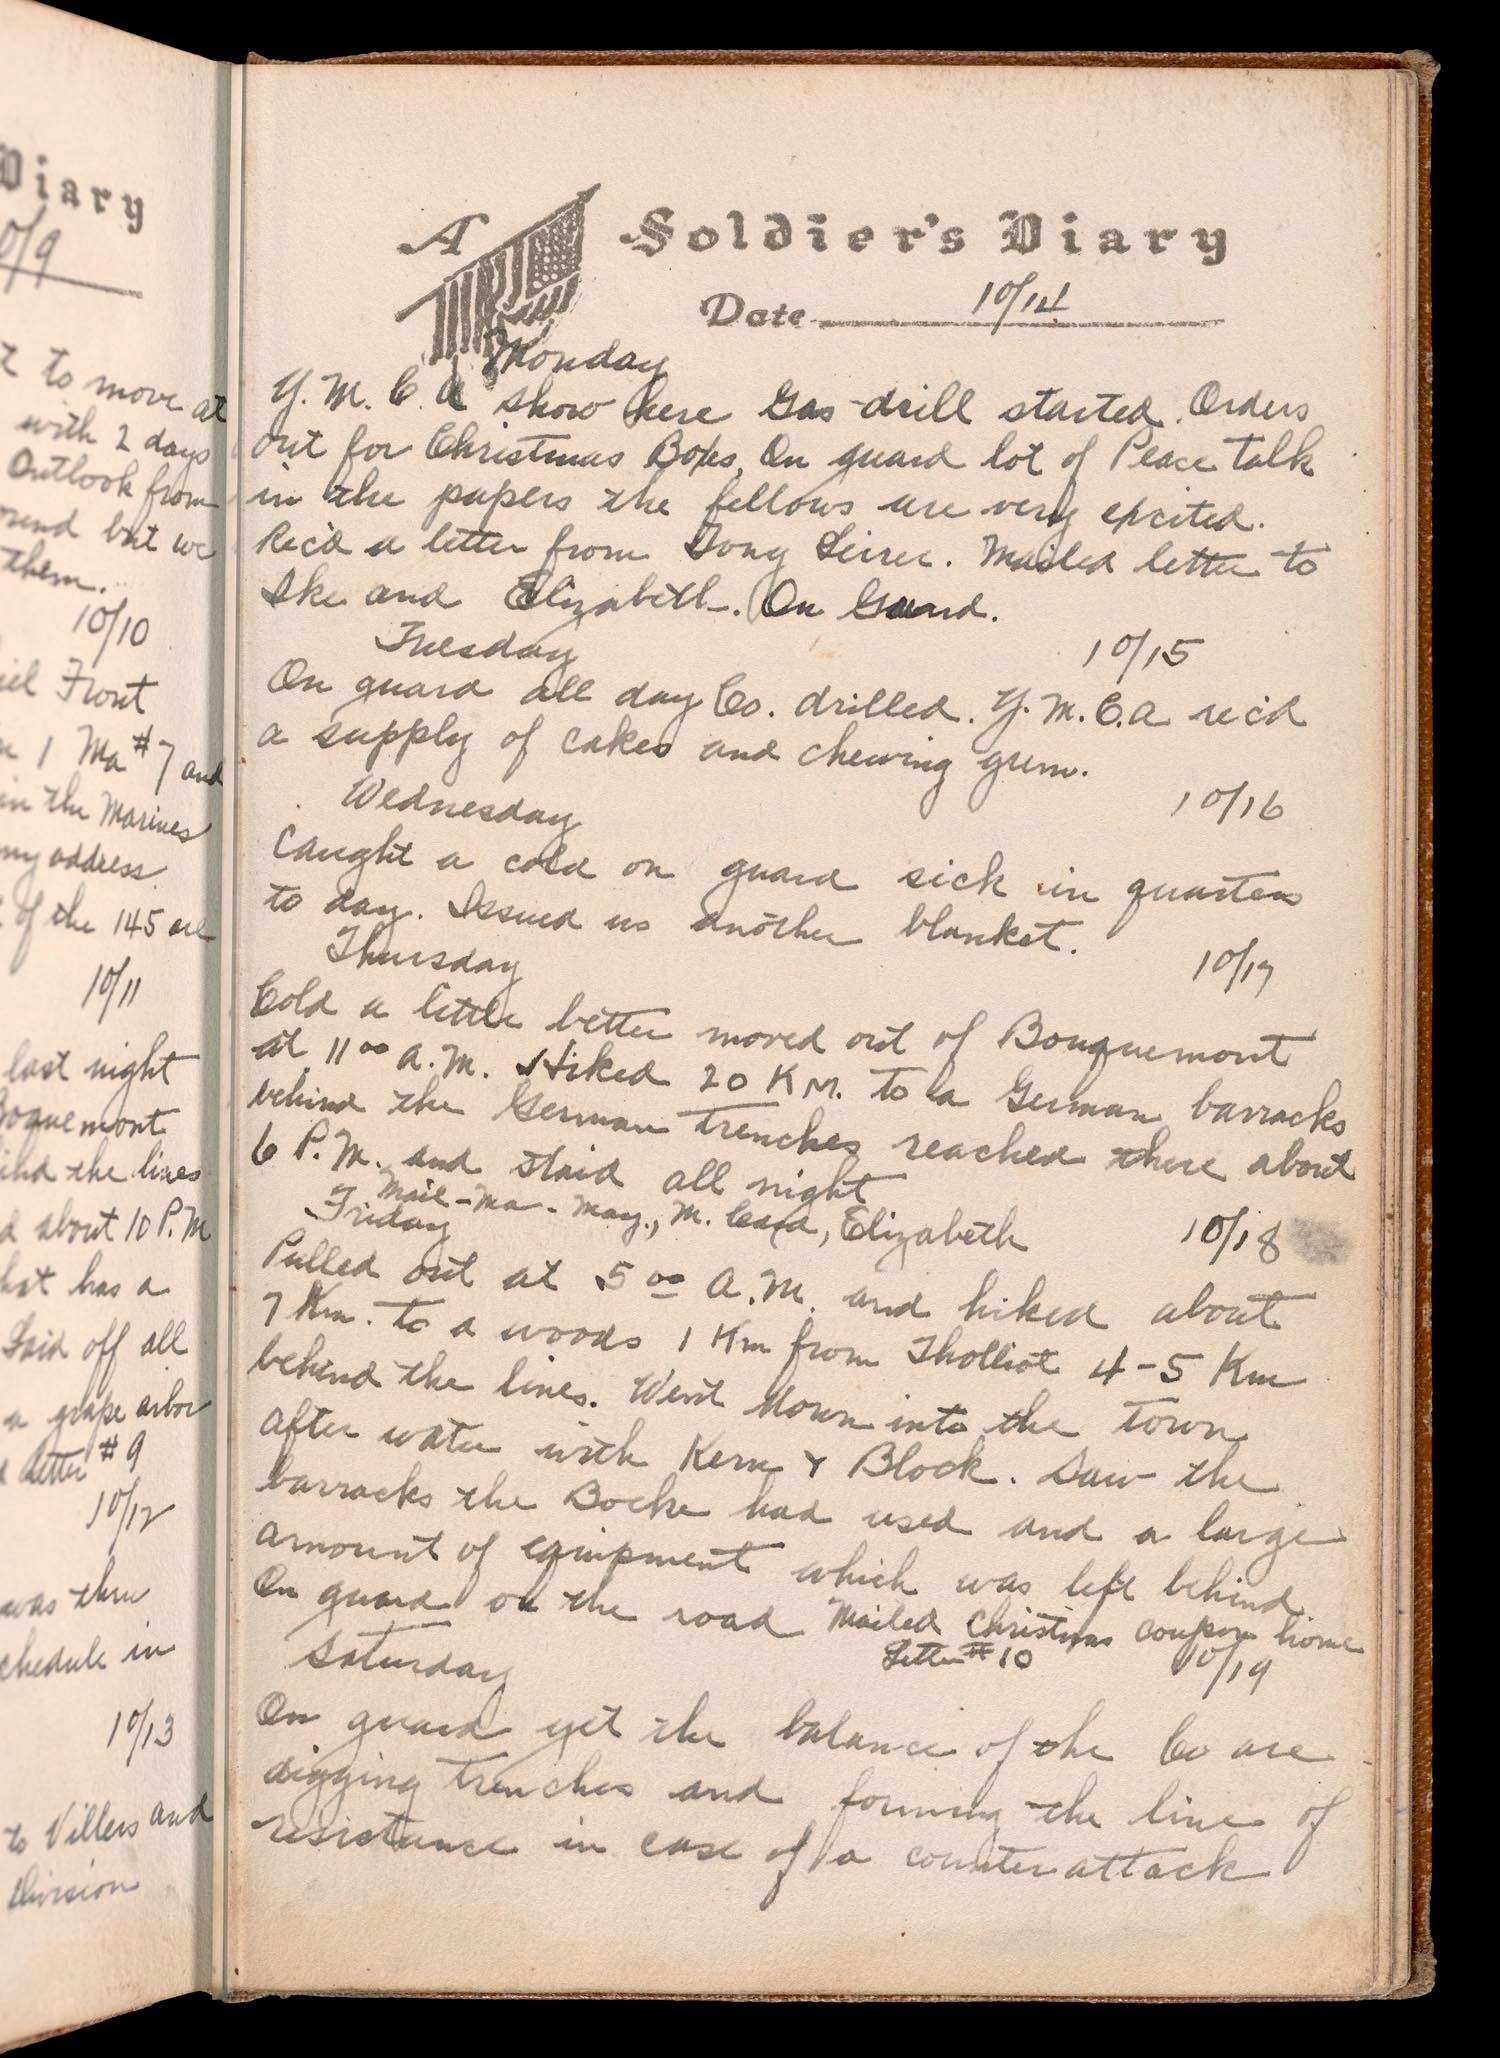 Diary
10/9
to move at
with 2 days
Outlook from
but we
them.
10/10
Front
1 Ma #7 and
in the Marines
my address
of the 145 are
10/11
last night
the lines
about 10 P.M
has a
Laid off all
a grape arbor
letter #9
10/12
was thru
schedule in
10/13
to Villers and
Division
A Soldier's Diary
Date 10/14
Monday
Y. M. C. A show here Gas drill started. Orders
out for Christmas Boxes, On guard lot of Peace talk
in the papers the fellows are very excited.
Rec'd a letter from Tony. Mailed letter to
Ike and Elizabeth. On Guard.
Tuesday 10/15
On guard all day Co. drilled. Y. M. C. A rec'd
a supply of cakes and chewing gum.
Wednesday 10/16
Caught a cold on guard sick in quarters
to day. Issued us another blanket.
Thursday 10/17
Cold a little better moved out of Bouquemont
at 11 00 A.M. Hiked 20 KM. to a German barracks
behind the German trenches reached there about
6 P.M. and staid all night
Mail - Ma - May., M. Elizabeth
Friday 10/18
Pulled out at 5 00 A.M. and hiked about
7 Km. to a woods 1 Km from Tholliot 4-5 Km
behind the lines. Went down into the town
after water with Kern & Block. Saw the
barracks the Boche had used and a large
amount of equipment which was left behind
On guard on the road Mailed Christmas coupon home
Letter #10
Saturday 10/19
On guard yet the balance of the Co are
digging trenches and forming the line of
resistance in case of a counter attack